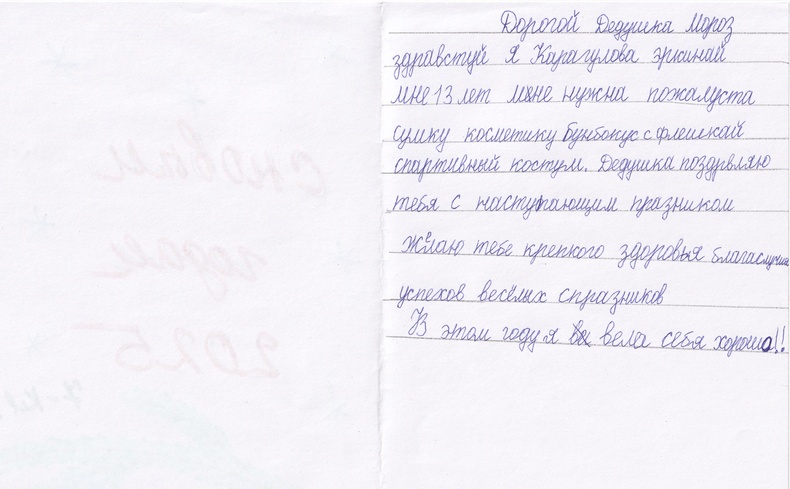 Дорогой Дедушка Мороз
здравстуй я Карагулова эркинай
мне 13 лет мне нужна пожалуста
сумку косметику бунбокус с флешкай
спартивный костум. Дедушка поздувляю
тебя с наступающим празником
Желаю тебе крепкого здоровья благаслучия
успехов весёлых спразников
В этом году я вы вела себя хорошо!!
с новым
годом
2025